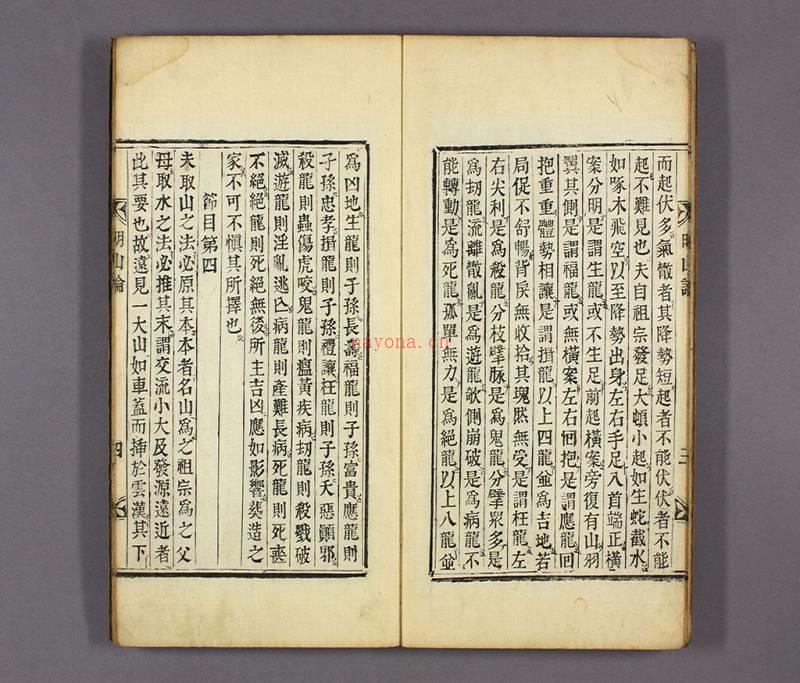 而起伏多氣散者其降勢短起者不能伏伏者不能
起不難見也夫自祖宗發足大頓小起如生蛇截水
如啄木飛空以至降勢出身左右手足入首端正橫
案分明是謂生龍或不生足前起橫案旁復有山羽
翼其側是謂福龍或無橫案左右回抱是謂應龍回
抱重重體勢相讓是謂揖龍以上四龍並爲吉地若
局促不舒暢背戾無收拾其塊然無受是謂枉龍左
右尖利是爲殺龍分枝擘脉是爲鬼龍分擘衆多是
爲刼龍流離散亂是爲遊龍欹側崩破是爲病龍不
能轉動是爲死龍孤單無力是爲絕龍以上八龍並
明山論
三
爲凶地生龍則子孫長壽福龍則子孫富貴應龍則
子孫忠孝揖龍則子孫禮讓枉龍則子孫夭惡顚邪
殺龍則蟲傷虎咬鬼龍則瘟黃疾病刼龍則殺戮破
滅遊龍則淫亂逃亡病龍則產難長病死龍則死喪
不絕絕龍則死絕無後所主吉凶應如影響葬造之
家不可不愼其所擇也
節目第四
夫取山之法必原其本本者名山爲之祖宗爲之父
母取水之法必推其末謂交流小大及發源遠近者
此其要也故遠見一大山如車蓋而揷於雲漢其下
明山論
四
nayona.cn